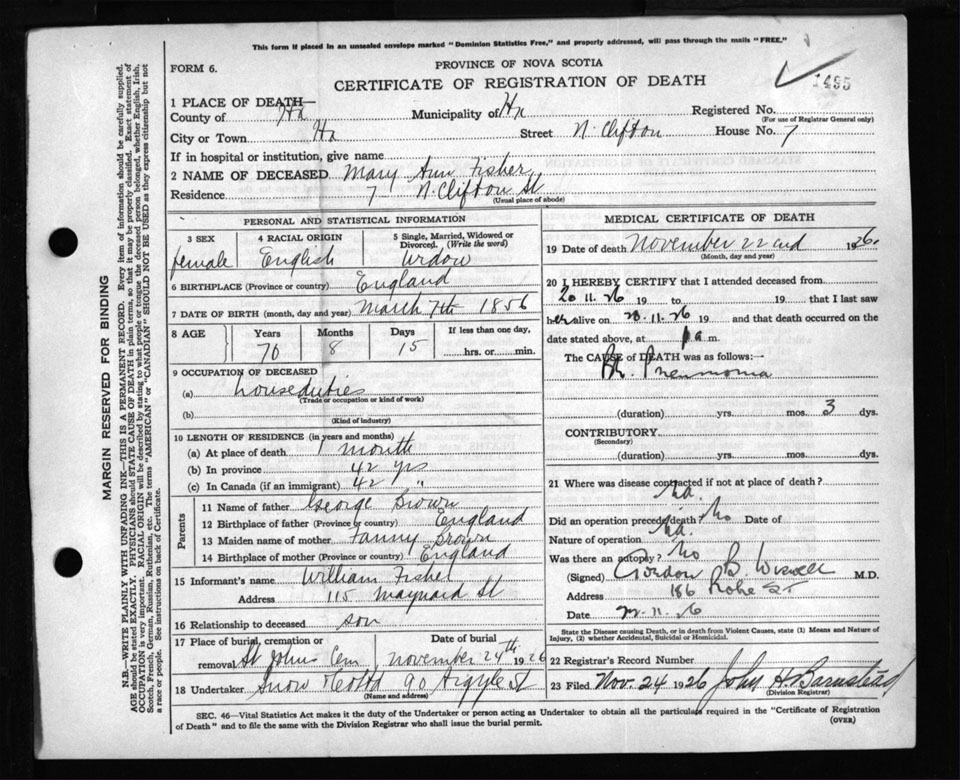 This form if placed in an unsealed envelope marked "Dominion Statistics Free," and properly addressed, will pass through the mails "FREE."
FORM 6.
PROVINCE OF NOVA SCOTIA
CERTIFICATE OF REGISTRATION OF DEATH
1495
1 PLACE OF DEATH—
County of Hx Municipality of Hx Registered No.
(For use of Registrar General only)
City or Town Hx Street N. Clifton House No. 7
If in hospital or institution, give name
2 NAME OF DECEASED Mary Ann Fisher
Residence 7 N. Clifton St
(Usual place of abode)
PERSONAL AND STATISTICAL INFORMATION
3 SEX 4 RACIAL ORIGIN 5 Single, Married, Widowed or Divorced. (Write the word)
female English Widow
6 BIRTHPLACE (Province or country) England
7 DATE OF BIRTH (month, day and year) March 7th 1856
8 AGE Years Months Days If less than one day,
70 8 15 hrs. or min.
9 OCCUPATION OF DECEASED
(a) house duties
(Trade or occupation or kind of work)
(b)
(Kind of industry)
10 LENGTH OF RESIDENCE (in years and months)
(a) At place of death 1 month
(b) In province 42 yrs
(c) In Canada (if an immigrant) 42 "
Parents
11 Name of father George Brown
12 Birthplace of father (Province or country) England
13 Maiden name of mother Fanny Brown
14 Birthplace of mother (Province or country) England
15 Informant's name William Fisher
Address 115 Maynard St
16 Relationship to deceased son
17 Place of burial, cremation or removal Date of burial
St Johns Cem, November 24th 1926
18 Undertaker Snow & Co Ltd 90 Argyle St
MEDICAL CERTIFICATE OF DEATH
19 Date of death November 22nd 1926.
(Month, day and year)
20 I HEREBY CERTIFY that I attended deceased from
20.11.26 19 to 19 that I last saw
her alive on 21.11.26 19 and that death occurred on the
date stated above, at 1 a m.
The CAUSE of DEATH was as follows:—
Br. Pneumonia
(duration) yrs. mos. 3 dys.
CONTRIBUTORY
(Secondary)
(duration) yrs. mos. dys.
21 Where was disease contracted if not at place of death?
Ha.
Did an operation precede death No Date of
Nature of operation
Was there an autopsy? No
(Signed) Gordon B Wiswell M.D.
Address 186 Robie St
Date 22.11.26
State the Disease causing Death, or in death from Violent Causes, state (1) Means and Nature of Injury, (2) whether Accidental, Suicidal or Homicidal.
22 Registrar's Record Number
23 Filed Nov. 24 1926 John H. Barnstead
(Division Registrar)
SEC. 46—Vital Statistics Act makes it the duty of the Undertaker or person acting as Undertaker to obtain all the particulars required in the "Certificate of Registration
of Death" and to file the same with the Division Registrar who shall issue the burial permit.
(OVER)
MARGIN RESERVED FOR BINDING
N.B.—WRITE PLAINLY WITH UNFADING INK—THIS IS A PERMANENT RECORD. Every item of information should be carefully supplied.
AGE should be stated EXACTLY. PHYSICIANS should STATE CAUSE OF DEATH in plain terms, so that it may be properly classified. Exact statement of
OCCUPATION is very important. RACIAL ORIGIN will be described by stating to what people or tongue the deceased person belonged, whether English, Irish,
Scotch, French, German, Russian, Ruthenian, etc. The terms "AMERICAN" or "CANADIAN" SHOULD NOT BE USED as they express citizenship but not
a race or people. See instructions on back of Certificate.